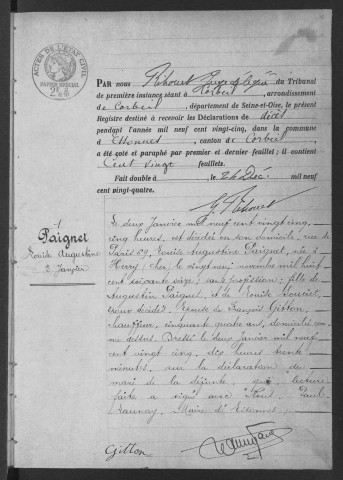 ACTES DE L'ÉTAT CIVIL
PAPIER SPÉCIAL
PAR nous Rihouet Juge du Tribunal
de première instance séant à Corbeil, arrondissement
de Corbeil, département de Seine-et-Oise, le présent
Registre destiné à recevoir les Déclarations de décès
pendant l'année mil neuf cent vingt-cinq, dans la commune
d'Essonnes, canton de Corbeil,
a été coté et paraphé par premier et dernier feuillet; il contient
Cent vingt feuillets.
Fait double à , le 24 Dec. mil neuf
cent vingt-quatre.
Rihouet
1
Paignet
Louise Augustine
2 Janvier
Le deux Janvier mil neuf cent vingt cinq,
cinq heures, est décédée en son domicile, rue de
Paris 59, Louise Augustine Paignet, née à
Herry (Cher) le vingt neuf novembre mil huit
cent soixante seize; sans profession; fille de
Augustin Paignet, et de Louise
époux décédés. Epouse de François Gitton,
chauffeur, cinquante quatre ans, domicilié comme
dessus. Dressé le deux Janvier mil neuf
cent vingt cinq, dix heures trente
minutes, sur la déclaration du
mari de la défunte, qui lecture
faite a signé avec Nous, Paul
Launay, Maire d'Essonnes.
Gitton